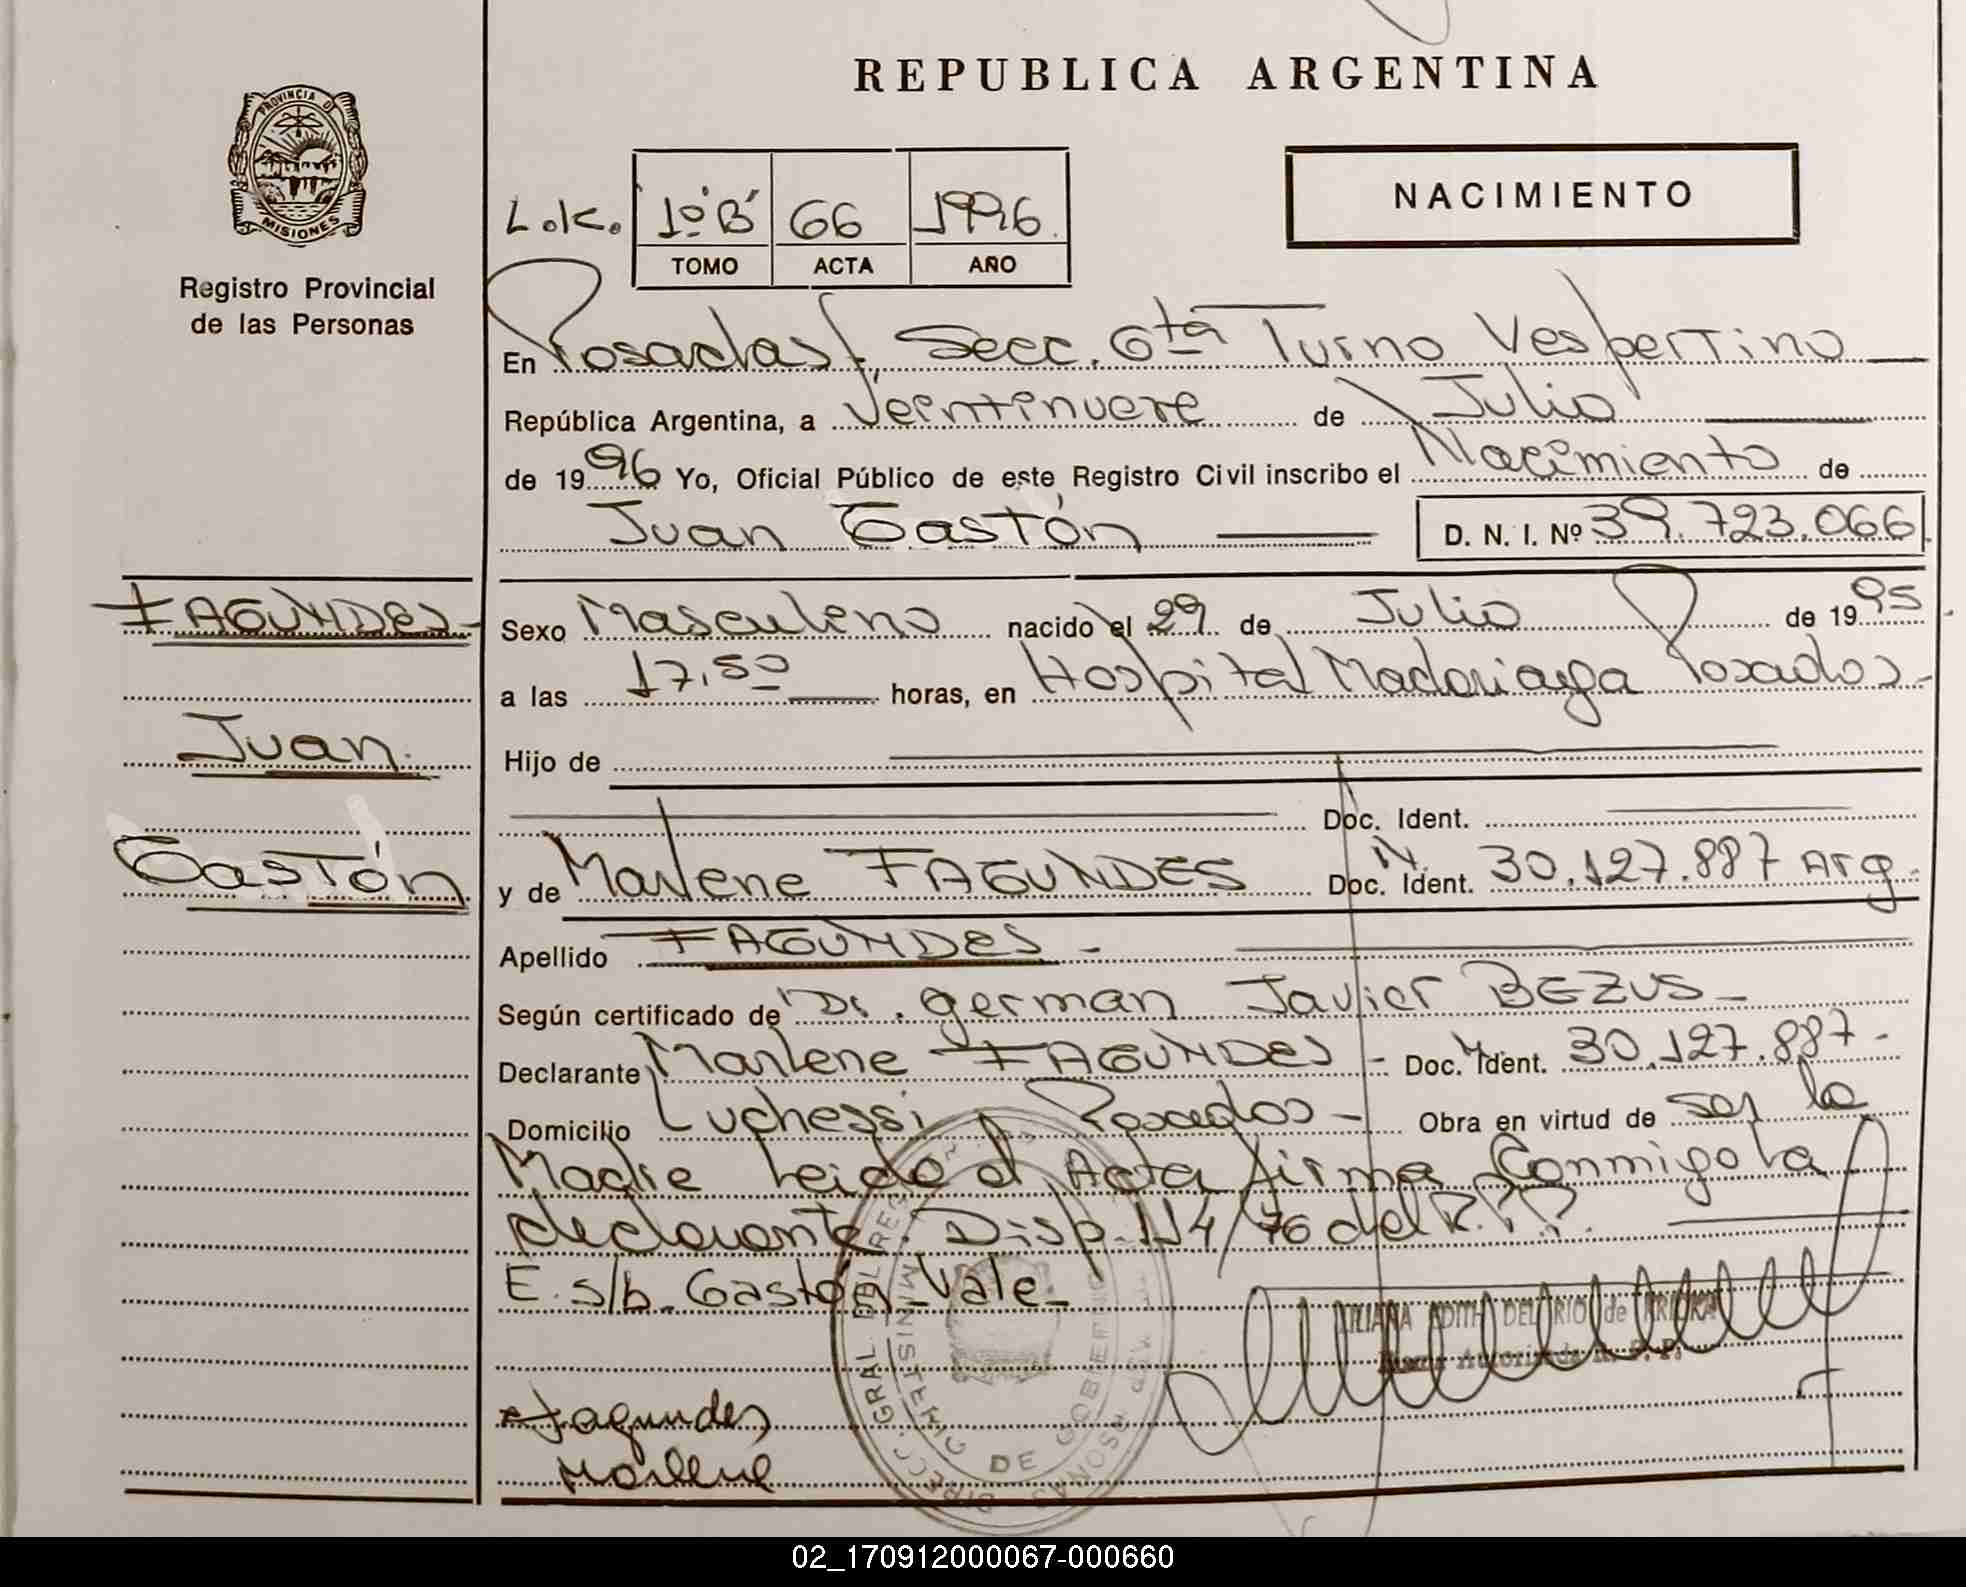 REPUBLICA ARGENTINA
PROVINCIA D
MISIONES
Registro Provincial
de las Personas
NACIMIENTO
L.K. 1º"B" 66 1996
TOMO ACTA AÑO
En Posadas, Secc. 6ta Turno Vespertino
República Argentina, a Veintinueve de Julio
de 1996 Yo, Oficial Público de este Registro Civil inscribo el Nacimiento de
Juan Gastón D. N. I. Nº 39.723.066
FAGUNDES
Juan
Gastón
Sexo Masculino nacido el 29 de Julio de 1995
a las 17,50 horas, en Hospital Madariaga Posadas
Hijo de
Doc. Ident.
y de Marlene FAGUNDES Doc. N. Ident. 30.127.887 Arg.
Apellido FAGUNDES -
Según certificado de Dr. german Javier BEZUS -
Declarante Marlene FAGUNDES - Doc. Ident. 30.127.887.-
Domicilio Luchessi Posadas - Obra en virtud de ser la
Madre Leida el Acta firma Conmigo la
declarante. Disp. 114/76 del R.P.P.
E. s/b. Gastón - Vale -
LILIANA EDITH DEL RIO de
Firma Autorizada R. P. P.
Fagundes
Marlene
DIRECC. GRAL DEL REG
MINISTERIO DE GOBIERNO
02_170912000067-000660